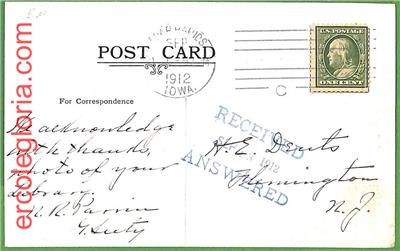 POST CARD
SEP
1912
IOWA.
U.S. POSTAGE
ONE CENT
C
For Correspondence
I acknowledge
with thanks,
photo of your
library.
N. R. Parvin
RECEIVED
1912
ANSWERED
H. E. Deats
Flemington
N. J.
ercolegloria.com